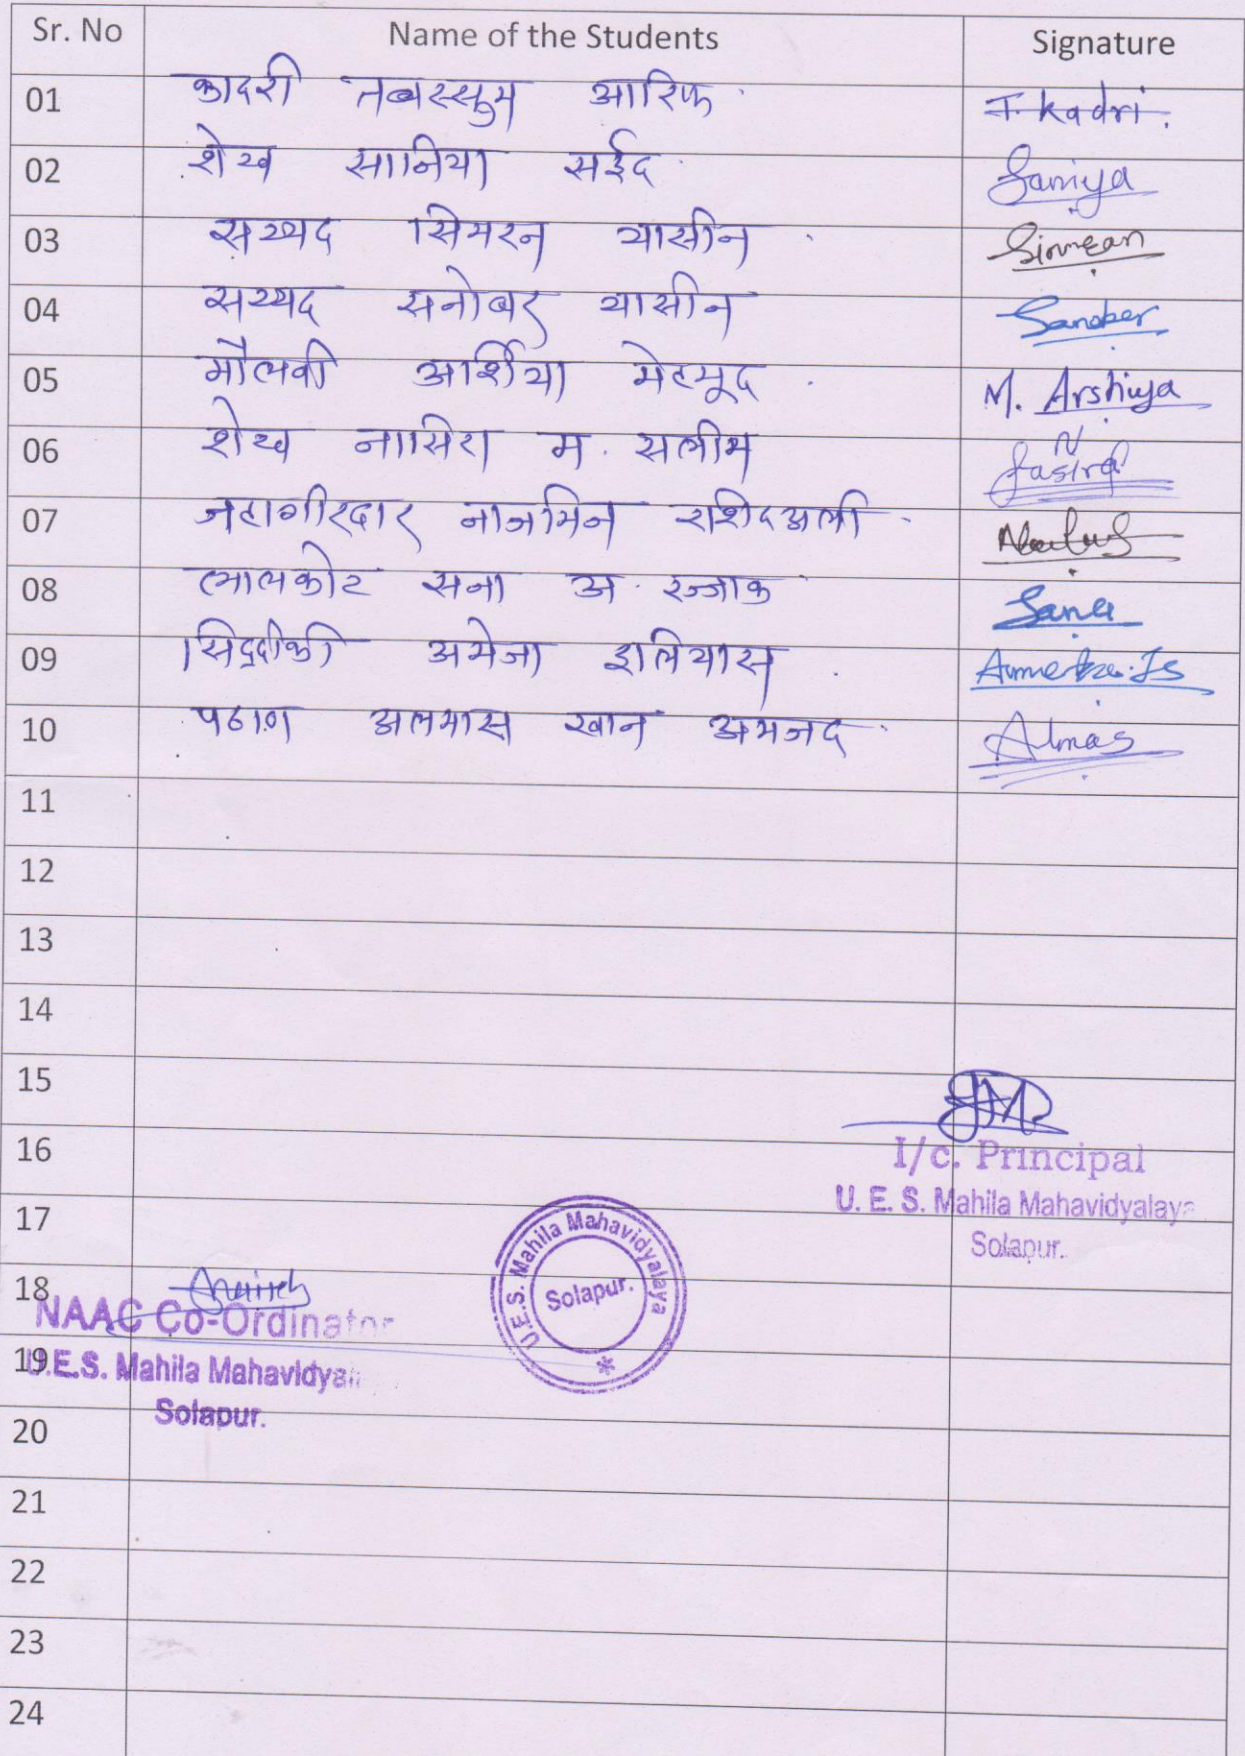 Sr. No Name of the Students Signature
01 कादरी तबस्सुम आरिफ T. Kadri.
02 शेख सानिया सईद Saniya
03 सय्यद सिमरन यासीन Simran
04 सय्यद सनोबर यासीन Sanober
05 मौलवी आर्शिया मेहमूद M. Arshiya
06 शेख नासिरा म. सलीम Nasira
07 जहागीरदार नाजमिन राशिदअली
08 लालकोट सना अ. रज्जाक Sana
09 सिद्दीकी अमेजा इलियास
10 पठाण अलमास खान अमजद Almas
11
12
13
14
15
16 I/c. Principal
U. E. S. Mahila Mahavidyalaya
17
Solapur.
U.E.S. Mahila Mahavidyalaya
Solapur.
*
18
NAAC Co-Ordinator
19
U.E.S. Mahila Mahavidyal
Solapur.
20
21
22
23
24